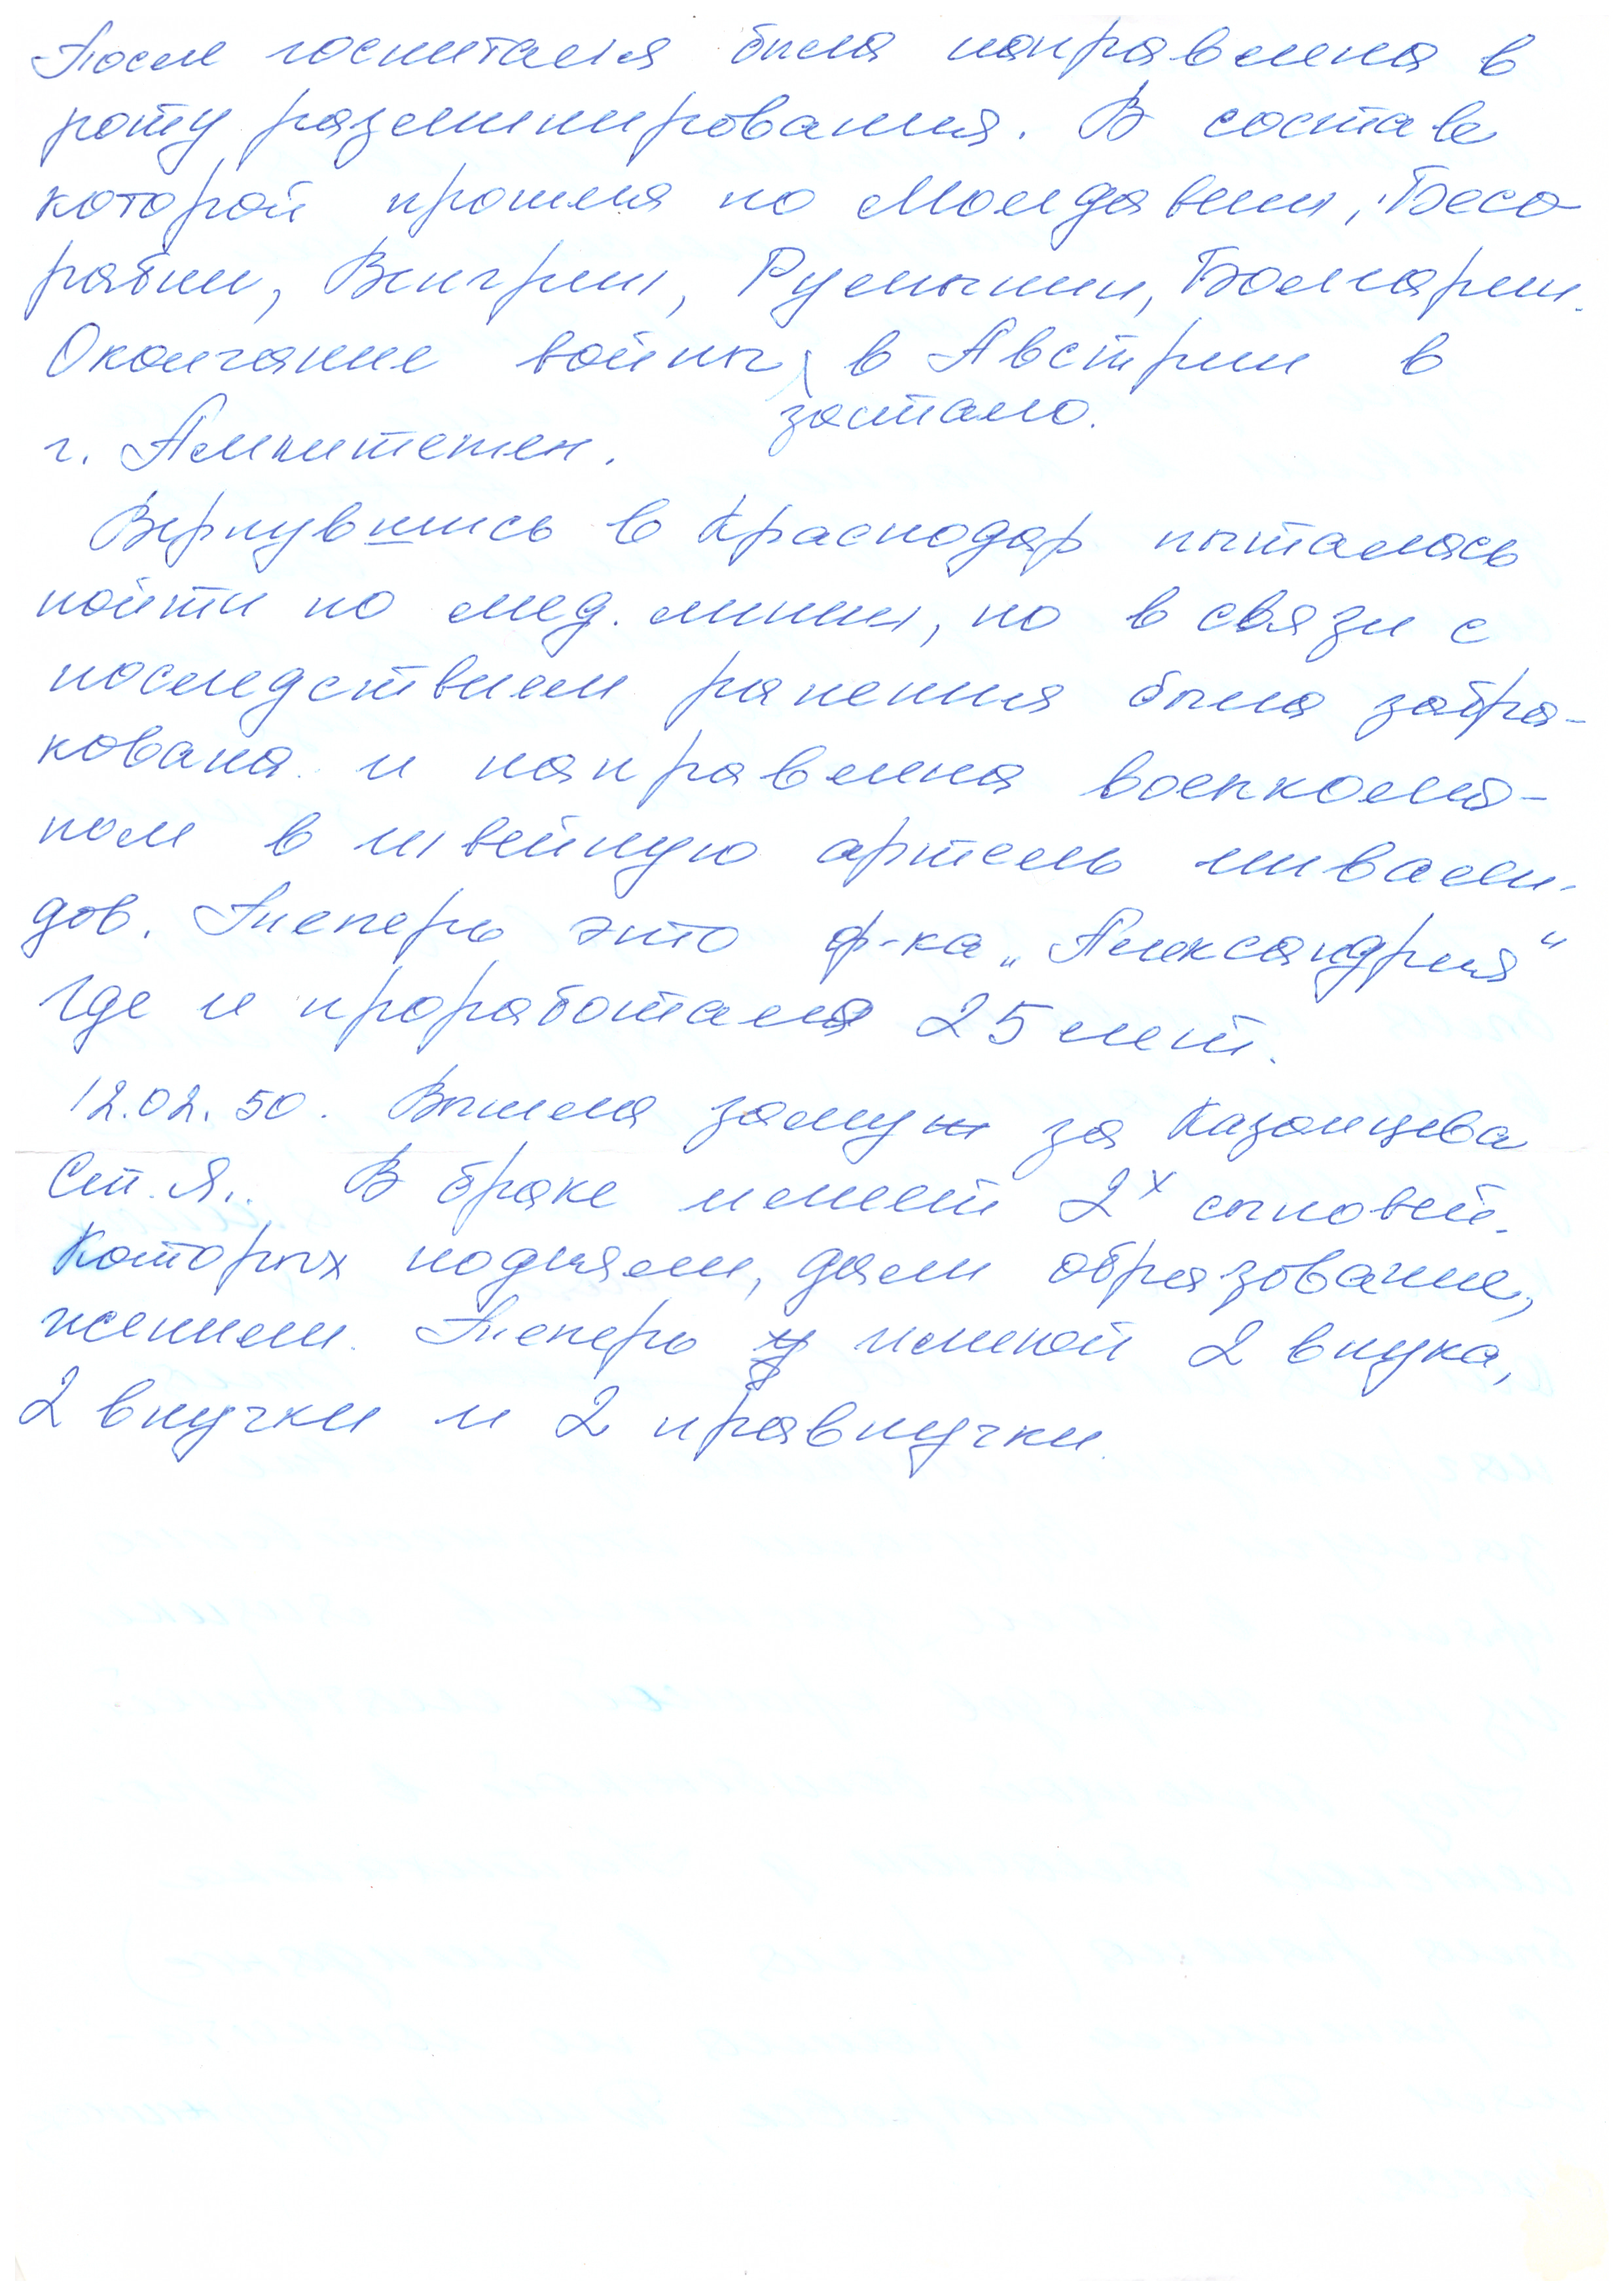 После госпиталя была направлена в
роту разминирования. В составе
которой прошла по Молдавии, Бесо
рабии, Венгрии, Румынии, Болгарии.
Окончание войны застало. в Австрии в
г.
Вернувшись в Краснодар пыталась
пойти по мед. линии, но в связи с
последствием ранения была забра-
кована и направлена военкома-
ном в швейную артель инвали-
дов. Теперь это ф-ка „Александрия“
Где и проработала 25 лет.
12.02.50. Вышла замуж за Казанцева
Ст. Я.. В браке имеем 2х сыновей.
Которых подняли, дали образование,
женили. Теперь имеем 2 внука,
2 внучки и 2 правнучки.